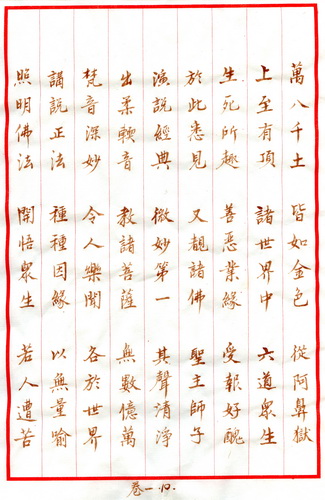 萬八千土 皆如金色 從阿鼻獄
上至有頂 諸世界中 六道眾生
生死所趣 善惡業緣 受報好醜
於此悉見 又覩諸佛 聖主師子
演說經典 微妙第一 其聲清淨
出柔軟音 教諸菩薩 無數億萬
梵音深妙 令人樂聞 各於世界
講說正法 種種因緣 以無量喻
照明佛法 開悟眾生 若人遭苦
卷一.10.